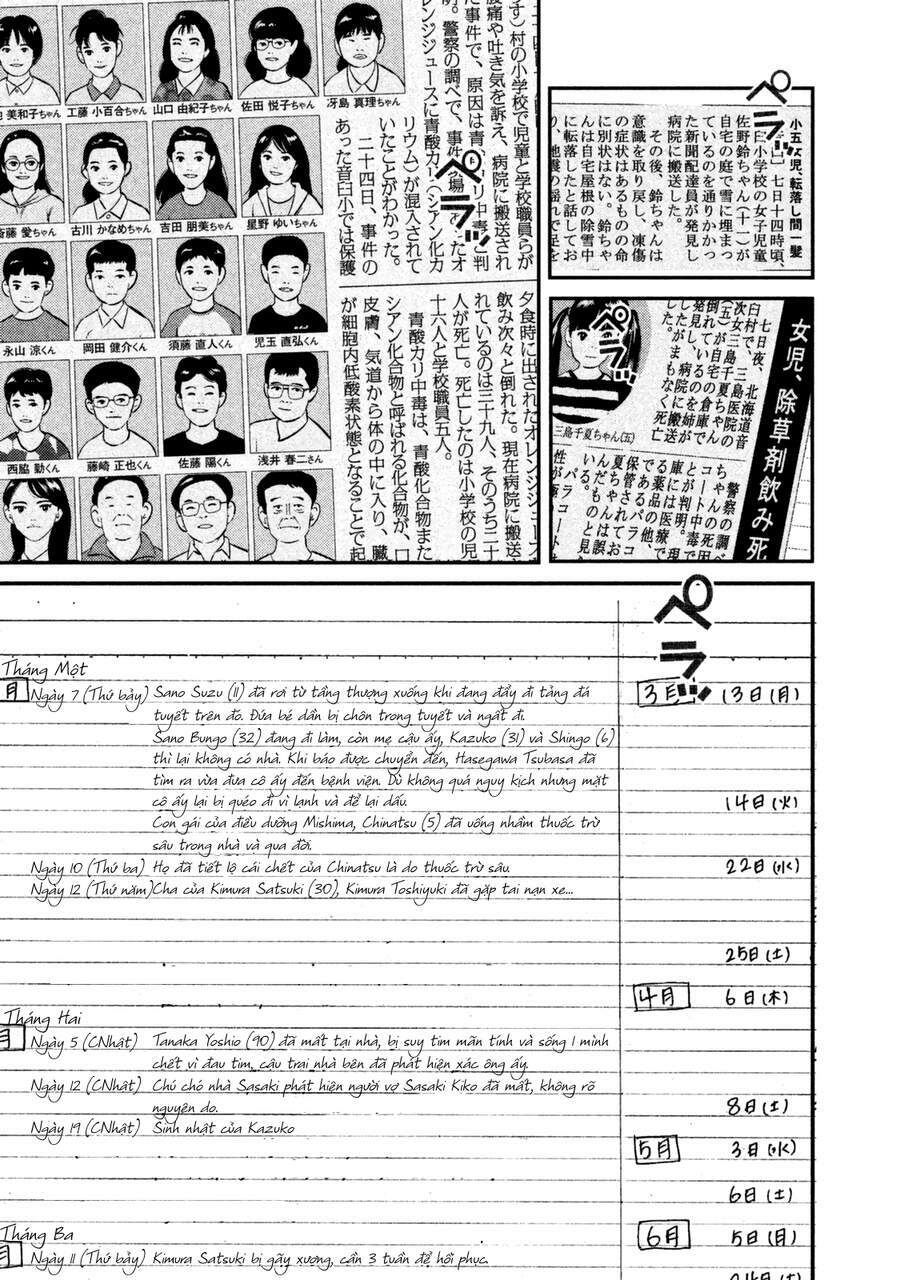 ペラッ
小五女児、転落し間一髪
七日十四時頃、
臼小学校の女子児童
佐野鈴ちゃん(十一)が
自宅の庭で雪に埋まっ
ているのを通りかかっ
た新聞配達員が発見し
病院に搬送した。
その後、鈴ちゃんは
意識を取り戻し、凍傷
の症状はあるものの命
に別状はない。鈴ちゃ
んは自宅屋根の除雪中
に転落したと話してお
の揺れで足を
女児、除草剤飲み死
ペラッ
七日夜、北海道音
臼村で、三島医院の
次女三島千夏ちゃん
(五)が自宅の倉庫で
倒れているのを姉が
発見し、病院に搬送
したがまもなく死亡
した。
三島千夏ちゃん(五)
警察の調べ
ちゃんの死因
コート中毒で
とが判明。現
庫には医療で
る薬品の他、
であるパラコ
保管されてお
夏ちゃんは誤
んだものと見
いる。
パラコート
性が極
ペラッ
す)村の小学校で児童と学校職員らが
腹痛や吐き気を訴え、病院に搬送され
た事件で、原因は青
中毒と判
明。警察の調べで、事件
たオ
レンジジュースに青酸カリ(シアン化カ
リウム)が混入されて
いたことがわかった。
二十四日、事件の
あった音臼小では保護
夕食時に出されたオレンジジュース
飲み次々と倒れた。現在病院に搬送
れているのは三十九人、そのうち二十
人が死亡。死亡したのは小学校の児
十六人と学校職員五人。
青酸カリ中毒は、青酸化合物また
シアン化合物と呼ばれる化合物が、口
皮膚、気道から体の中に入り、臓
が細胞内低酸素状態となることで起
美和子ちゃん
工藤 小百合ちゃん
山口 由紀子ちゃん
佐田 悦子ちゃん
冴島 真理ちゃん
斎藤 愛ちゃん
古川 かなめちゃん
吉田 朋美ちゃん
星野 ゆいちゃん
永山 涼くん
岡田 健介くん
須藤 直人くん
児玉 直弘くん
西脇 勤くん
藤崎 正也くん
佐藤 陽くん
浅井 春二さん
ペラッ
Tháng Một
月 Ngày 7 (Thứ bảy) Sano Suzu (11) đã rơi từ tầng thượng xuống khi đang đẩy đi tảng đá
tuyết trên đó. Đứa bé dần bị chôn trong tuyết và ngất đi.
Sano Bungo (32) đang đi làm, còn mẹ cậu ấy, Kazuko (31) và Shingo (6)
thì lại không có nhà. Khi báo được chuyển đến, Hasegawa Tsubasa đã
tìm ra vừa đưa cô ấy đến bệnh viện. Dù không quá nguy kịch nhưng mặt
cô ấy lại bị quéo đi vì lạnh và để lại dấu.
Con gái của điều dưỡng Mishima, Chinatsu (5) đã uống nhầm thuốc trừ
sâu trong nhà và qua đời.
Ngày 10 (Thứ ba) Họ đã tiết lộ cái chết của Chinatsu là do thuốc trừ sâu.
Ngày 12 (Thứ năm) Cha của Kimura Satsuki (30), Kimura Toshiyuki đã gặp tai nạn xe...
Tháng Hai
月 Ngày 5 (CNhật) Tanaka Yoshio (90) đã mất tại nhà, bị suy tim mãn tính và sống 1 mình
chết vì đau tim, cậu trai nhà bên đã phát hiện xác ông ấy.
Ngày 12 (CNhật) Chú chó nhà Sasaki phát hiện người vợ Sasaki Kiko đã mất, không rõ
nguyên do.
Ngày 19 (CNhật) Sinh nhật của Kazuko
Tháng Ba
月 Ngày 11 (Thứ bảy) Kimura Satsuki bị gãy xương, cần 3 tuần để hồi phục.
3月 13日(月)
14日(火)
22日(水)
25日(土)
4月 6日(木)
8日(土)
5月 3日(水)
6日(土)
6月 5日(月)
24日(土)